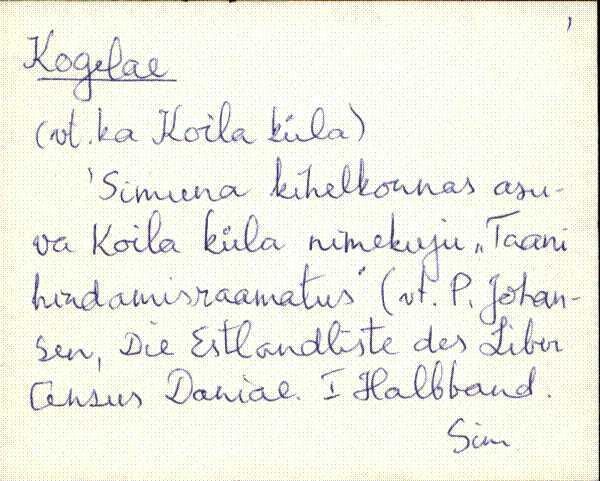 Kogelae
(vt. ka Koila küla)
'Simuna kihelkonnas asu-
va Koila küla nimekuju „Taani
hindamisraamatus" (vt. P. Johan-
sen, Die Estlandliste des Liber
Census Daniae. I Halbband.
Sim